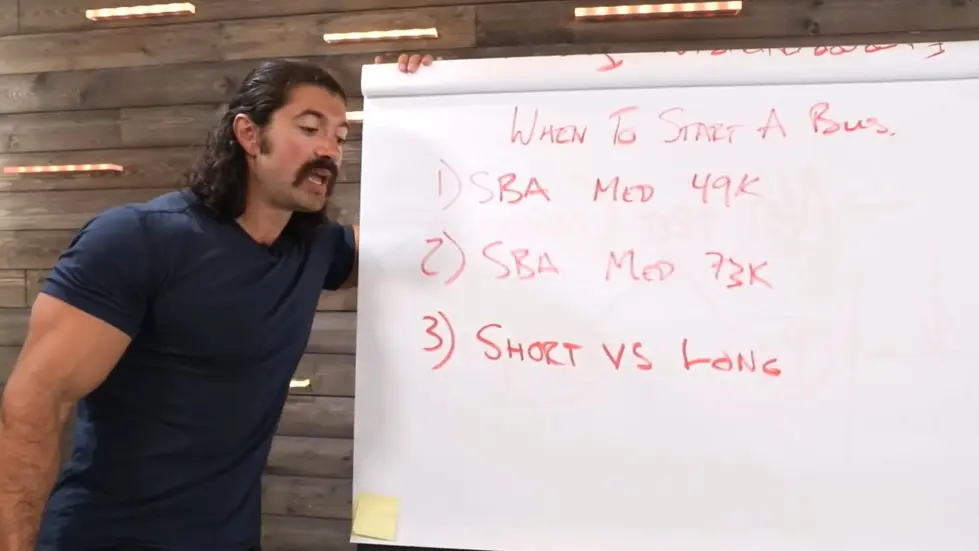 WHEN TO START A BUS.
1) SBA MED 49K
2) SBA MED 73K
3) SHORT VS LONG